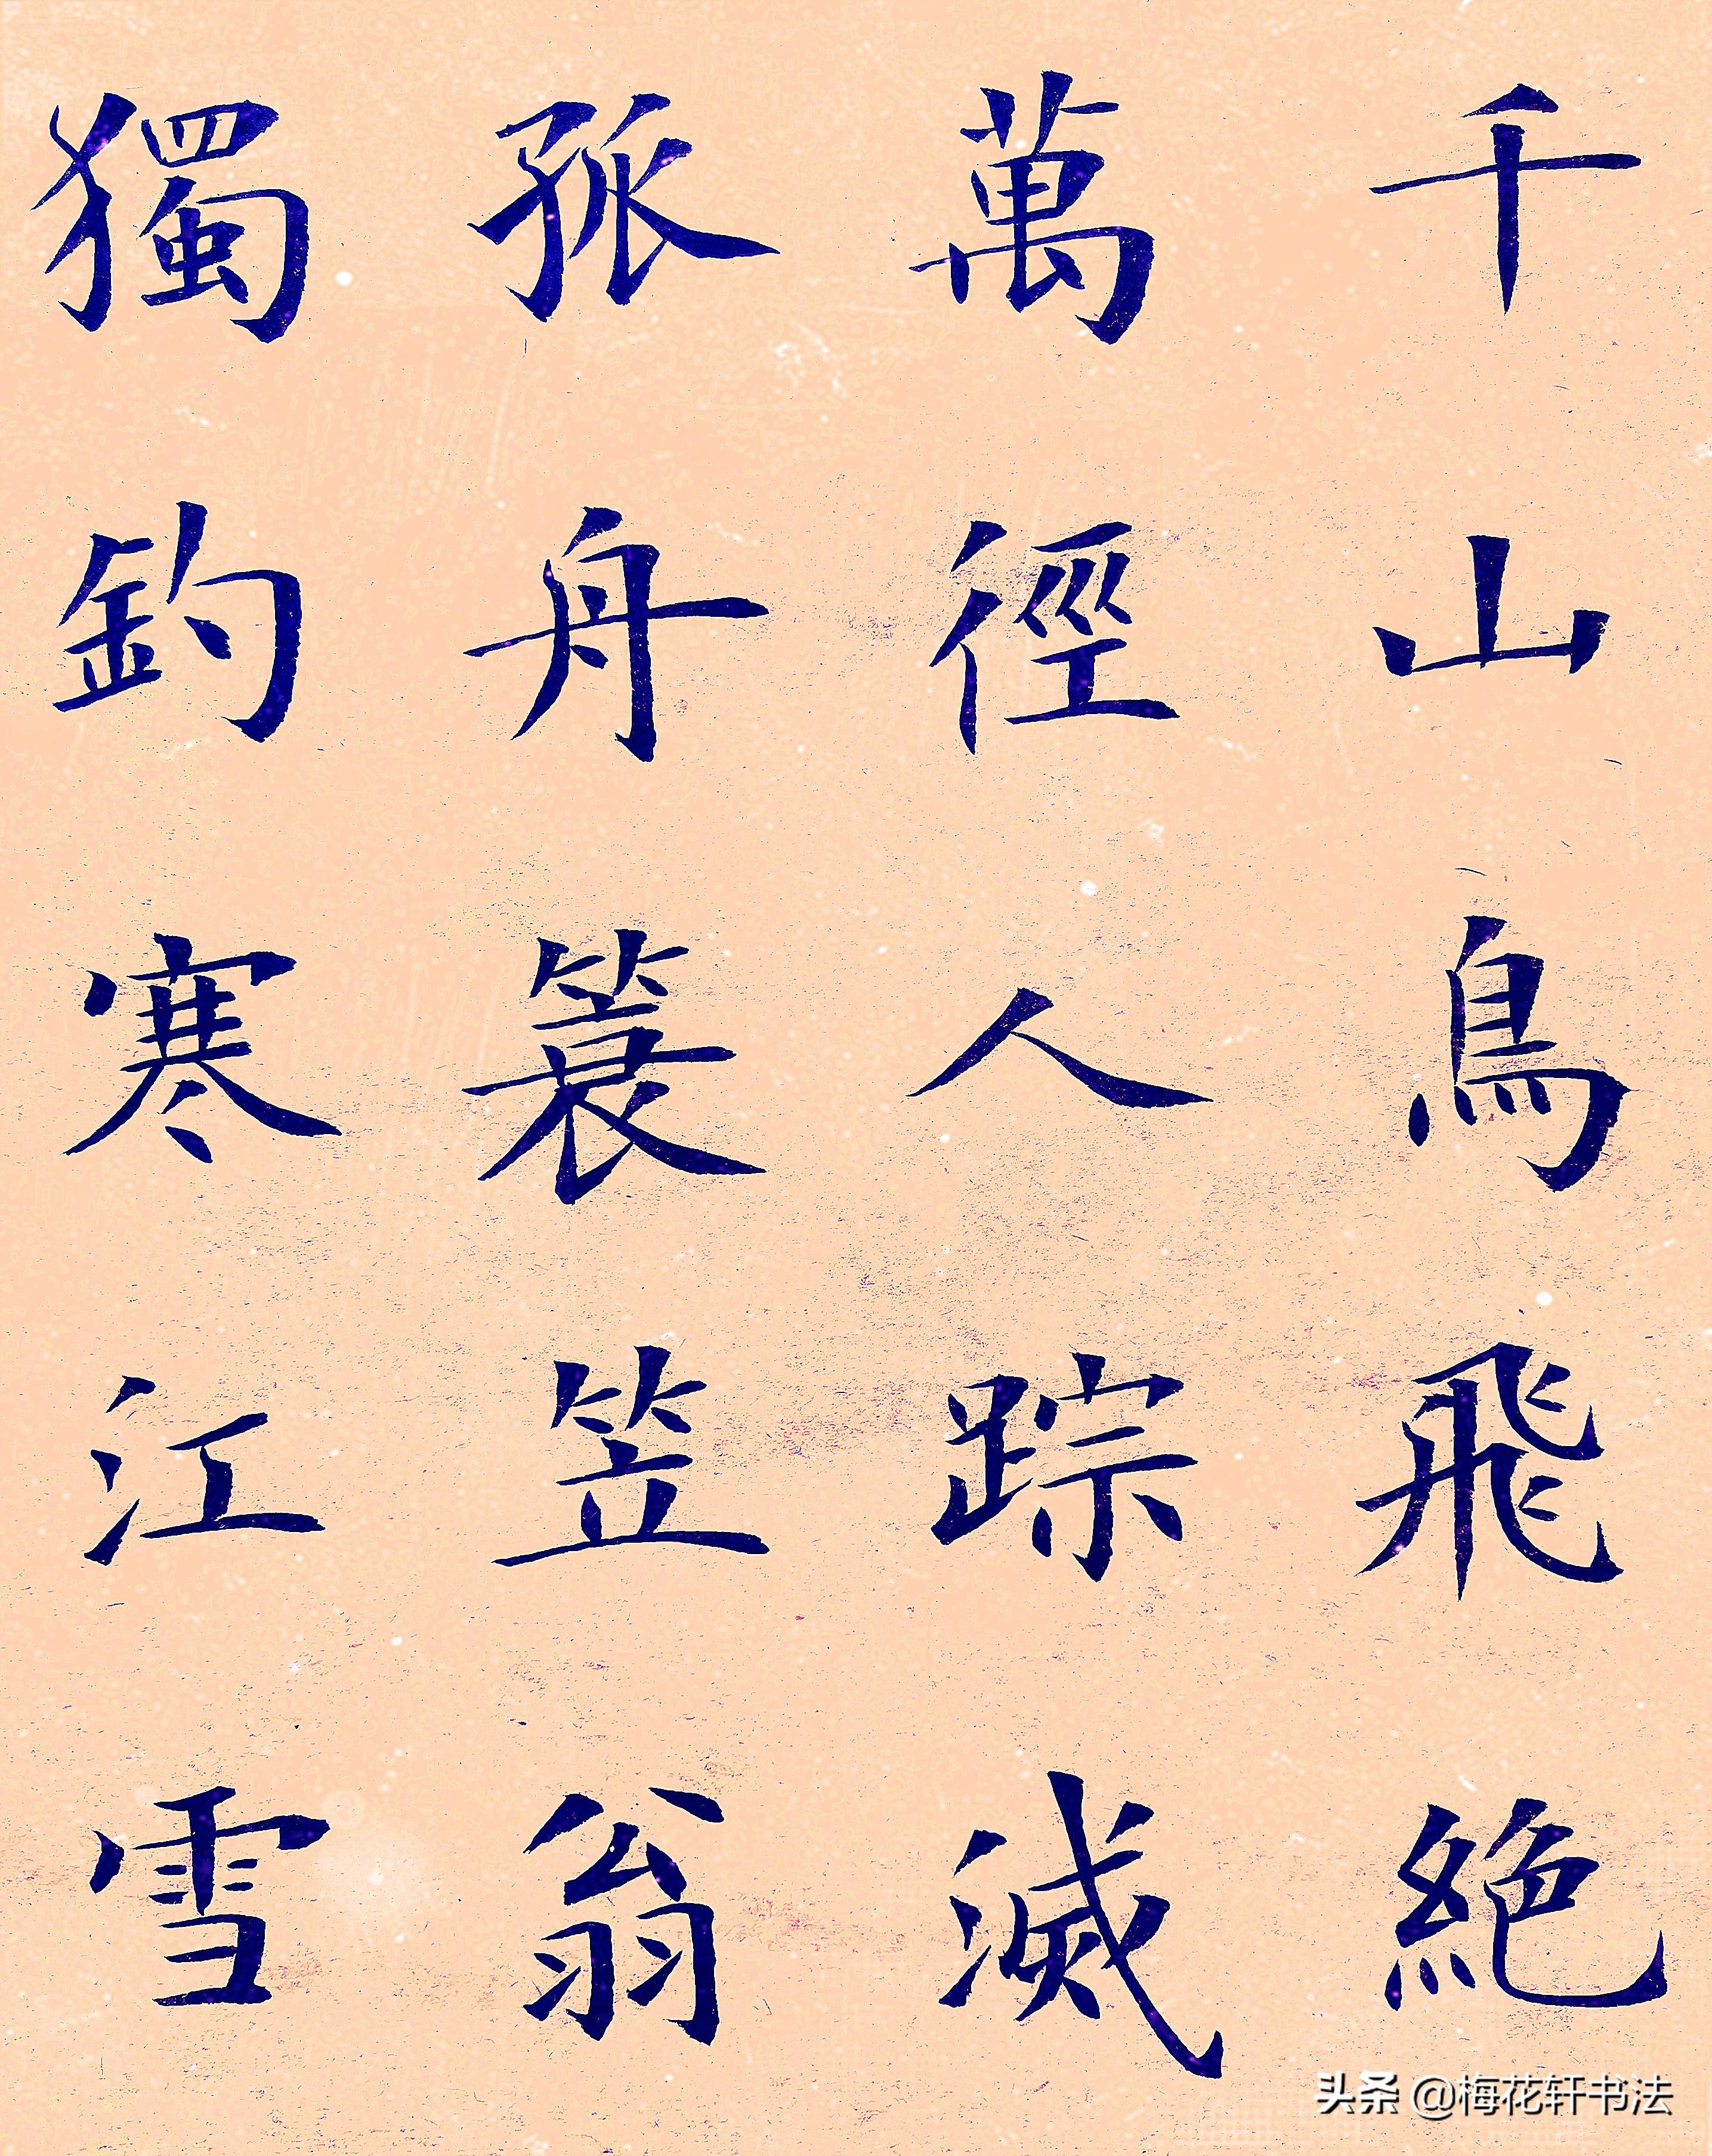 千山鳥飛絶
萬徑人踪滅
孤舟簑笠翁
獨釣寒江雪
头条 @梅花轩书法